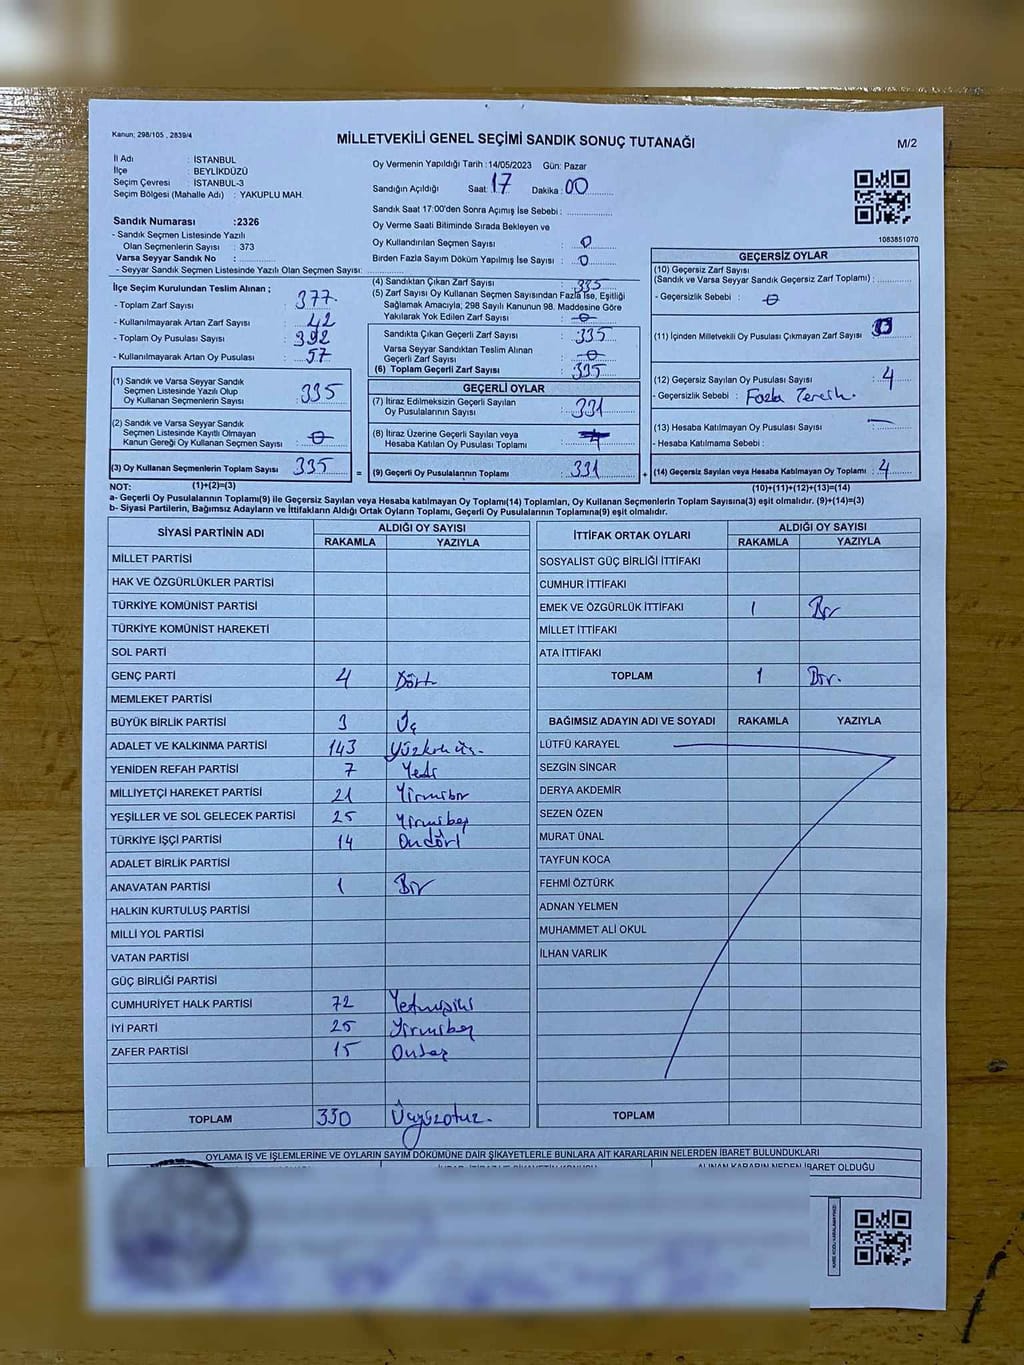 Kanun; 298/105 , 2839/4
MİLLETVEKİLİ GENEL SEÇİMİ SANDIK SONUÇ TUTANAĞI
M/2
İl Adı : İSTANBUL
İlçe : BEYLİKDÜZÜ
Seçim Çevresi : İSTANBUL-3
Seçim Bölgesi (Mahalle Adı) : YAKUPLU MAH.
Oy Vermenin Yapıldığı Tarih : 14/05/2023 Gün: Pazar
Sandığın Açıldığı Saat: 17 Dakika : 00
Sandık Saat 17:00'den Sonra Açımış İse Sebebi :
Oy Verme Saati Bitiminde Sırada Bekleyen ve
Oy Kullandırılan Seçmen Sayısı : 0
Birden Fazla Sayım Döküm Yapılmış İse Sayısı : 0
Sandık Numarası :2326
- Sandık Seçmen Listesinde Yazılı
Olan Seçmenlerin Sayısı : 373
Varsa Seyyar Sandık No :
- Seyyar Sandık Seçmen Listesinde Yazılı Olan Seçmen Sayısı:
1083851070
İlçe Seçim Kurulundan Teslim Alınan ;
- Toplam Zarf Sayısı : 377
- Kullanılmayarak Artan Zarf Sayısı : 42
- Toplam Oy Pusulası Sayısı : 392
- Kullanılmayarak Artan Oy Pusulası : 57
(1) Sandık ve Varsa Seyyar Sandık
Seçmen Listesinde Yazılı Olup
Oy Kullanan Seçmenlerin Sayısı : 335
(2) Sandık ve Varsa Seyyar Sandık
Seçmen Listesinde Kayıtlı Olmayan
Kanun Gereği Oy Kullanan Seçmen Sayısı : 0
(3) Oy Kullanan Seçmenlerin Toplam Sayısı 335
(1)+(2)=(3)
(4) Sandıktan Çıkan Zarf Sayısı : 335
(5) Zarf Sayısı Oy Kullanan Seçmen Sayısından Fazla İse, Eşitliği
Sağlamak Amacıyla; 298 Sayılı Kanunun 98. Maddesine Göre
Yakılarak Yok Edilen Zarf Sayısı : 0
Sandıkta Çıkan Geçerli Zarf Sayısı : 335
Varsa Seyyar Sandıktan Teslim Alınan
Geçerli Zarf Sayısı : 0
(6) Toplam Geçerli Zarf Sayısı : 335
GEÇERLİ OYLAR
(7) İtiraz Edilmeksizin Geçerli Sayılan
Oy Pusulalarının Sayısı : 331
(8) İtiraz Üzerine Geçerli Sayılan veya
Hesaba Katılan Oy Pusulası Toplamı :
= (9) Geçerli Oy Pusulalarının Toplamı : 331
GEÇERSİZ OYLAR
(10) Geçersiz Zarf Sayısı
(Sandık ve Varsa Seyyar Sandık Geçersiz Zarf Toplamı) :
- Geçersizlik Sebebi : 0
(11) İçinden Milletvekili Oy Pusulası Çıkmayan Zarf Sayısı :
(12) Geçersiz Sayılan Oy Pusulası Sayısı : 4
- Geçersizlik Sebebi : Fazla Tercih.
(13) Hesaba Katılmayan Oy Pusulası Sayısı :
- Hesaba Katılmama Sebebi :
+ (14) Geçersiz Sayılan veya Hesaba Katılmayan Oy Toplamı : 4
(10)+(11)+(12)+(13)=(14)
NOT:
a- Geçerli Oy Pusulalarının Toplamı(9) ile Geçersiz Sayılan veya Hesaba katılmayan Oy Toplamı(14) Toplamları, Oy Kullanan Seçmenlerin Toplam Sayısına(3) eşit olmalıdır. (9)+(14)=(3)
b- Siyasi Partilerin, Bağımsız Adayların ve İttifakların Aldığı Ortak Oyların Toplamı, Geçerli Oy Pusulalarının Toplamına(9) eşit olmalıdır.
SİYASİ PARTİNİN ADI ALDIĞI OY SAYISI
RAKAMLA YAZIYLA
MİLLET PARTİSİ
HAK VE ÖZGÜRLÜKLER PARTİSİ
TÜRKİYE KOMÜNİST PARTİSİ
TÜRKİYE KOMÜNİST HAREKETİ
SOL PARTİ
GENÇ PARTİ 4 Dört
MEMLEKET PARTİSİ
BÜYÜK BİRLİK PARTİSİ 3 Üç
ADALET VE KALKINMA PARTİSİ 143 Yüzkırküç.
YENİDEN REFAH PARTİSİ 7 Yedi
MİLLİYETÇİ HAREKET PARTİSİ 21 Yirmibir
YEŞİLLER VE SOL GELECEK PARTİSİ 25 Yirmibeş
TÜRKİYE İŞÇİ PARTİSİ 14 Ondört
ADALET BİRLİK PARTİSİ
ANAVATAN PARTİSİ 1 Bir
HALKIN KURTULUŞ PARTİSİ
MİLLİ YOL PARTİSİ
VATAN PARTİSİ
GÜÇ BİRLİĞİ PARTİSİ
CUMHURİYET HALK PARTİSİ 72 Yetmişiki
İYİ PARTİ 25 Yirmibeş
ZAFER PARTİSİ 15 Onbeş
TOPLAM 330 Üçyüzotuz.
İTTİFAK ORTAK OYLARI ALDIĞI OY SAYISI
RAKAMLA YAZIYLA
SOSYALİST GÜÇ BİRLİĞİ İTTİFAKI
CUMHUR İTTİFAKI
EMEK VE ÖZGÜRLÜK İTTİFAKI 1 Bir
MİLLET İTTİFAKI
ATA İTTİFAKI
TOPLAM 1 Bir.
BAĞIMSIZ ADAYIN ADI VE SOYADI RAKAMLA YAZIYLA
LÜTFÜ KARAYEL
SEZGİN SİNCAR
DERYA AKDEMİR
SEZEN ÖZEN
MURAT ÜNAL
TAYFUN KOCA
FEHMİ ÖZTÜRK
ADNAN YELMEN
MUHAMMET ALİ OKUL
İLHAN VARLIK
TOPLAM
OYLAMA İŞ VE İŞLEMLERİNE VE OYLARIN SAYIM DÖKÜMÜNE DAİR ŞİKAYETLERLE BUNLARA AİT KARARLARIN NELERDEN İBARET BULUNDUKLARI
ALINAN KARARIN NEDEN İBARET OLDUĞU